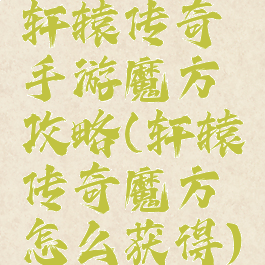 轩辕传奇
手游魔方
攻略(轩辕
传奇魔方
怎么获得)